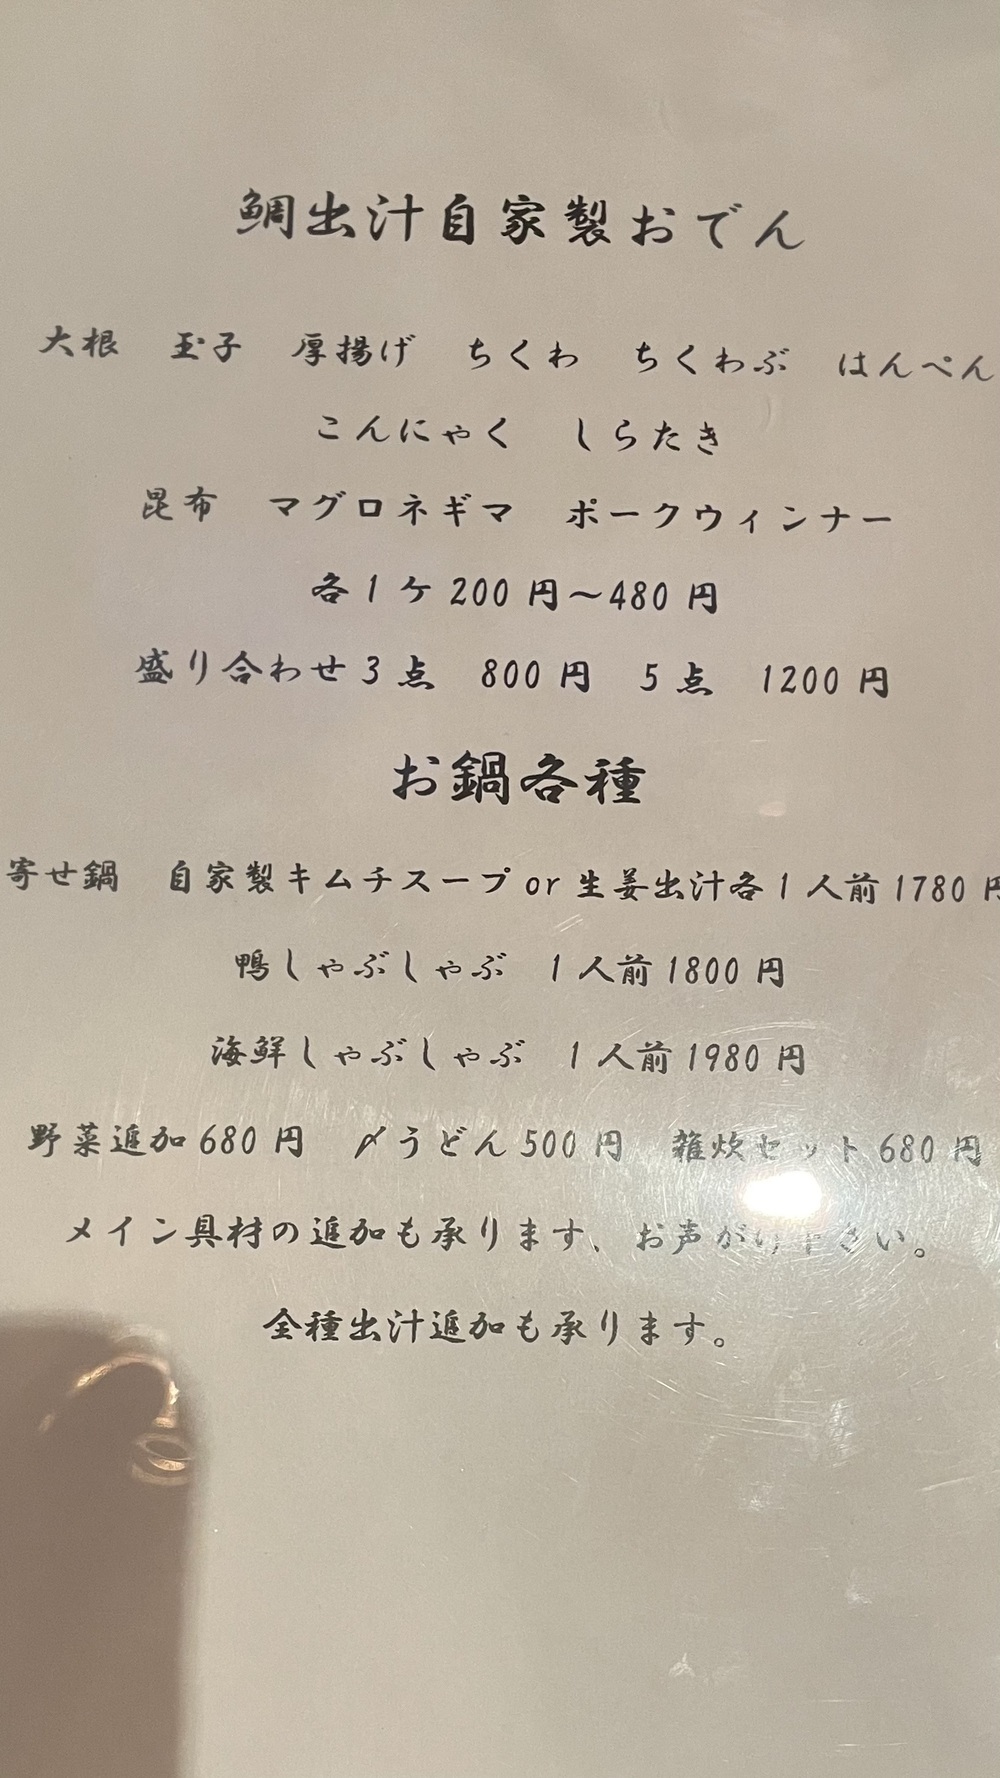 鯛出汁自家製おでん
大根　玉子　厚揚げ　ちくわ　ちくわぶ　はんぺん
こんにゃく　しらたき
昆布　マグロネギマ　ポークウィンナー
各1ケ200円〜480円
盛り合わせ3点　800円　5点　1200円
お鍋各種
寄せ鍋　自家製キムチスープor生姜出汁各1人前1780円
鴨しゃぶしゃぶ　1人前1800円
海鮮しゃぶしゃぶ　1人前1980円
野菜追加680円　〆うどん500円　雑炊セット680円
メイン具材の追加も承ります、お声がけ下さい。
全種出汁追加も承ります。